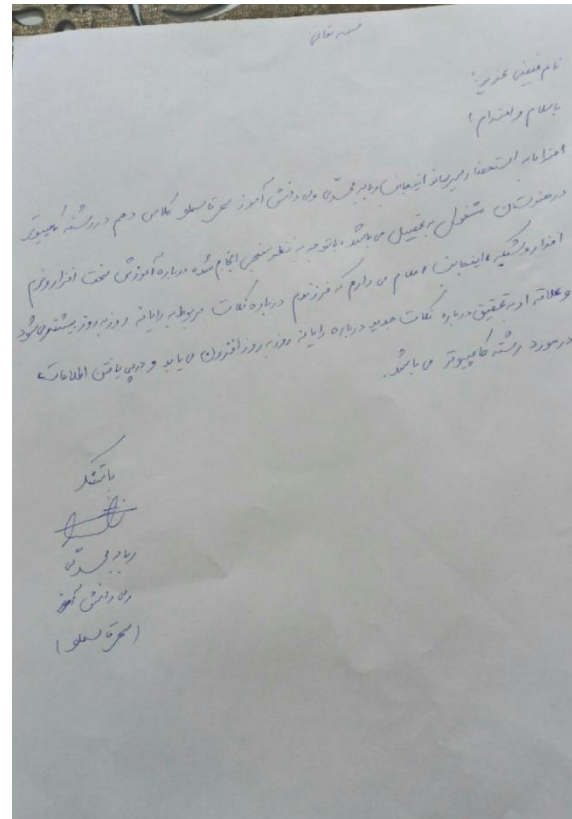 بسمه تعالی
با سلام و احترام؛
احتراما به استحضار میرساند اینجانب ربابه محبتی ولی دانش آموز سحر قاسملو کلاس دهم در رشته کامپیوتر
در هنرستان مشغول به تحصیل می باشد. با توجه به نظر سنجی انجام شده درباره آموزش سخت افزار و نرم
افزار و شبکه، اینجانب اعلام می دارم که فرزندم درباره نکات مربوط به رایانه روز به روز بیشتر می شود
و علاقه او به تحقیق درباره نکات جدید درباره رایانه روز به روز افزون می یابد و در پی یافتن اطلاعات
در مورد رشته کامپیوتر می باشد.
با تشکر
ربابه محبتی
ولی دانش آموز
(سحر قاسملو)